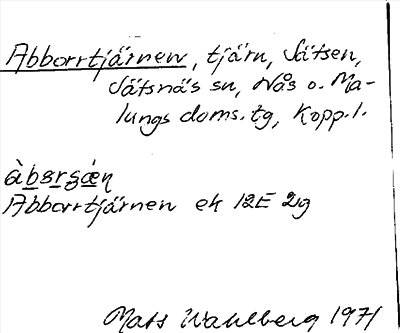 Abborrtjärnen, tjärn, Sätsen,
Sätsnäs sn, Nås o. Ma-
lungs doms. tg, Kopp. l.
Abborrtjärnen ek 12E 2g
Mats Wahlberg 1971